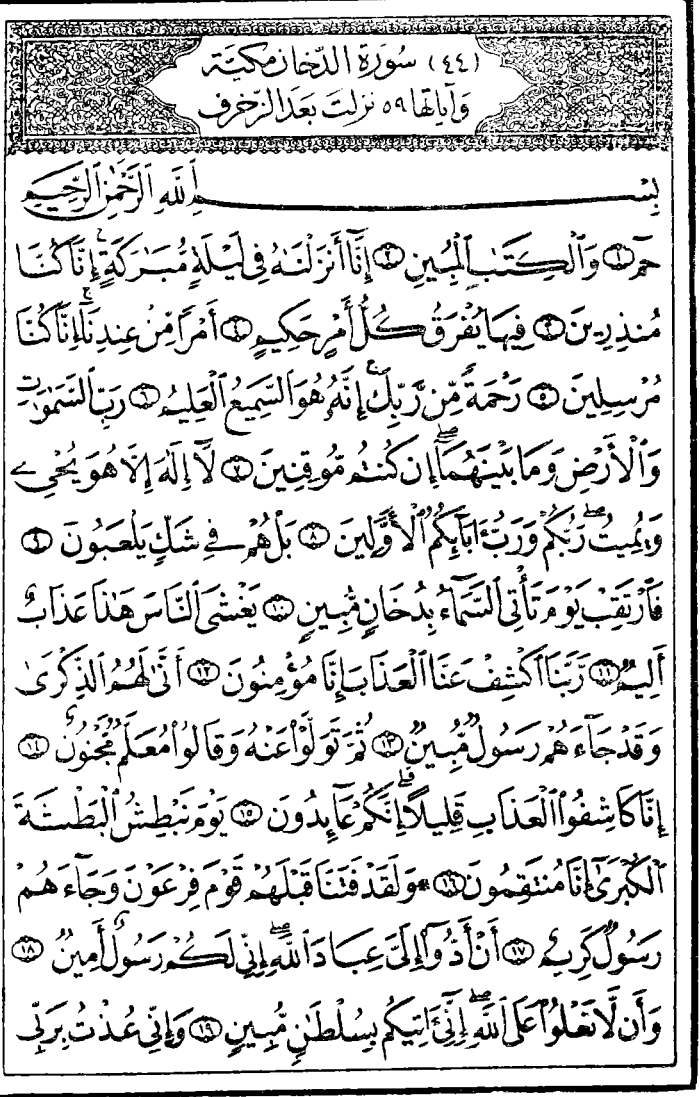 (٤٤) سُورَةِ الدّخَان مكيّة
وَآياتها ٥٩ نزلت بَعَد الزّخرف
بِسْمِ ٱللَّهِ ٱلرَّحْمَٰنِ ٱلرَّحِيمِ
حمٓ ١ وَٱلْكِتَٰبِ ٱلْمُبِينِ ٢ إِنَّآ أَنزَلْنَٰهُ فِى لَيْلَةٍ مُّبَٰرَكَةٍ ۚ إِنَّا كُنَّا
مُنذِرِينَ ٣ فِيهَا يُفْرَقُ كُلُّ أَمْرٍ حَكِيمٍ ٤ أَمْرًا مِّنْ عِندِنَآ ۚ إِنَّا كُنَّا
مُرْسِلِينَ ٥ رَحْمَةً مِّن رَّبِّكَ ۚ إِنَّهُۥ هُوَ ٱلسَّمِيعُ ٱلْعَلِيمُ ٦ رَبِّ ٱلسَّمَٰوَٰتِ
وَٱلْأَرْضِ وَمَا بَيْنَهُمَآ ۖ إِن كُنتُم مُّوقِنِينَ ٧ لَآ إِلَٰهَ إِلَّا هُوَ يُحْىِۦ
وَيُمِيتُ ۖ رَبُّكُمْ وَرَبُّ ءَابَآئِكُمُ ٱلْأَوَّلِينَ ٨ بَلْ هُمْ فِى شَكٍّ يَلْعَبُونَ ٩
فَٱرْتَقِبْ يَوْمَ تَأْتِى ٱلسَّمَآءُ بِدُخَانٍ مُّبِينٍ ١٠ يَغْشَى ٱلنَّاسَ هَٰذَا عَذَابٌ
أَلِيمٌ ١١ رَّبَّنَا ٱكْشِفْ عَنَّا ٱلْعَذَابَ إِنَّا مُؤْمِنُونَ ١٢ أَنَّىٰ لَهُمُ ٱلذِّكْرَىٰ
وَقَدْ جَآءَهُمْ رَسُولٌ مُّبِينٌ ١٣ ثُمَّ تَوَلَّوْا۟ عَنْهُ وَقَالُوا۟ مُعَلَّمٌ مَّجْنُونٌ ١٤
إِنَّا كَاشِفُوا۟ ٱلْعَذَابِ قَلِيلًا ۚ إِنَّكُمْ عَآئِدُونَ ١٥ يَوْمَ نَبْطِشُ ٱلْبَطْشَةَ
ٱلْكُبْرَىٰٓ إِنَّا مُنتَقِمُونَ ١٦ * وَلَقَدْ فَتَنَّا قَبْلَهُمْ قَوْمَ فِرْعَوْنَ وَجَآءَهُمْ
رَسُولٌ كَرِيمٌ ١٧ أَنْ أَدُّوٓا۟ إِلَىَّ عِبَادَ ٱللَّهِ ۖ إِنِّى لَكُمْ رَسُولٌ أَمِينٌ ١٨
وَأَن لَّا تَعْلُوا۟ عَلَى ٱللَّهِ ۖ إِنِّىٓ ءَاتِيكُم بِسُلْطَٰنٍ مُّبِينٍ ١٩ وَإِنِّى عُذْتُ بِرَبِّى